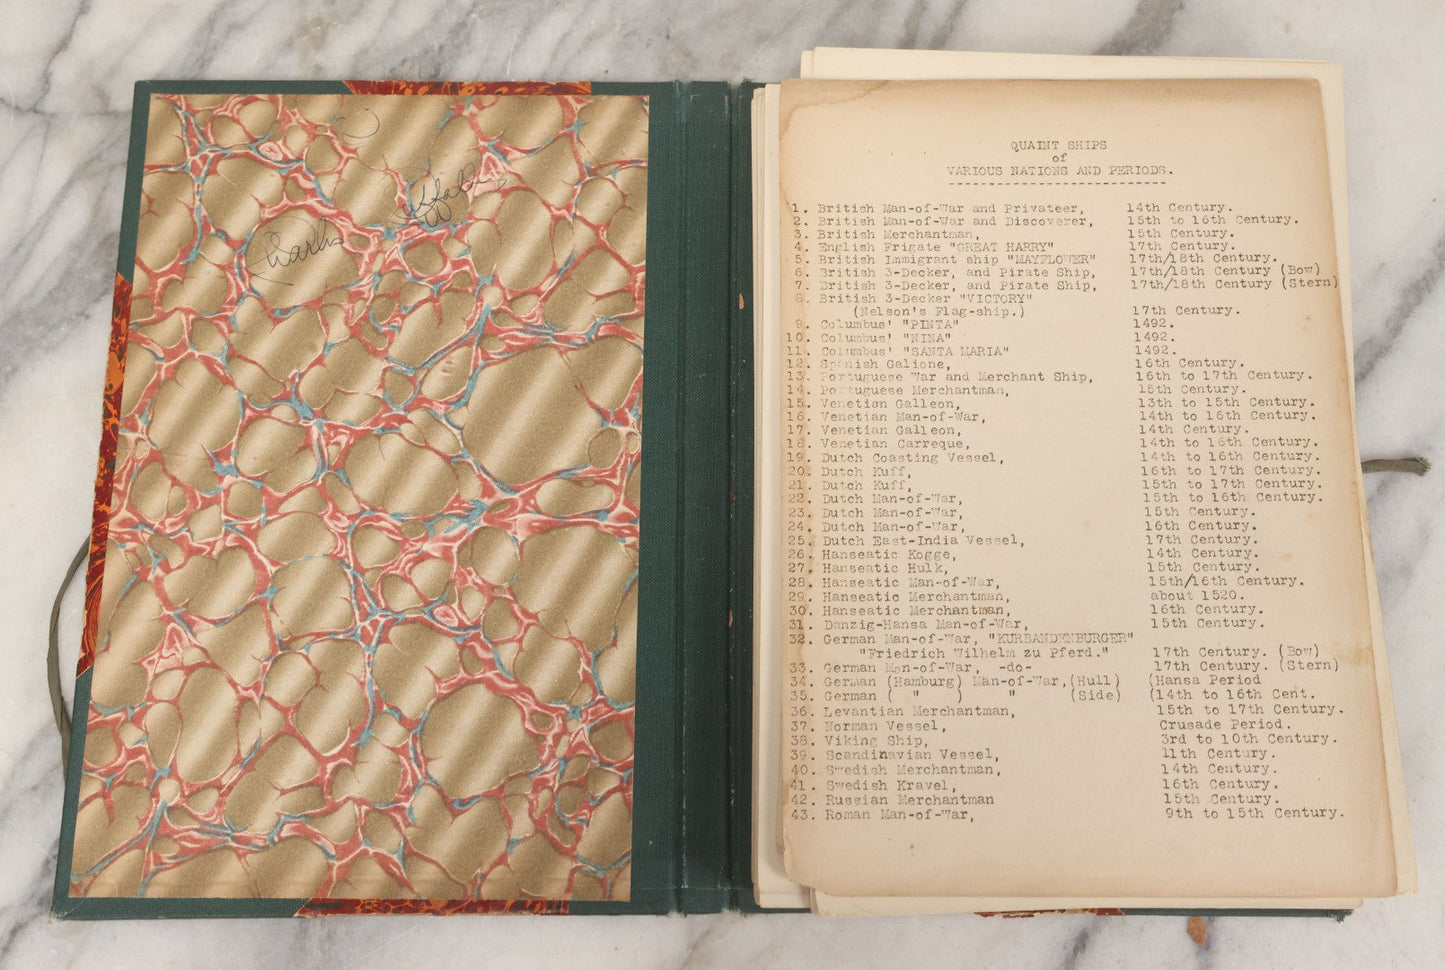 Charles
QUAINT SHIPS
of
VARIOUS NATIONS AND PERIODS.
1. British Man-of-War and Privateer, 14th Century.
2. British Man-of-War and Discoverer, 15th to 16th Century.
3. British Merchantman, 15th Century.
4. English Frigate "GREAT HARRY" 17th Century.
5. British Immigrant ship "MAYFLOWER" 17th/18th Century.
6. British 3-Decker, and Pirate Ship, 17th/18th Century (Bow)
7. British 3-Decker, and Pirate Ship, 17th/18th Century (Stern)
8. British 3-Decker "VICTORY"
(Nelson's Flag-ship.) 17th Century.
9. Columbus' "PINTA" 1492.
10. Columbus' "NINA" 1492.
11. Columbus' "SANTA MARIA" 1492.
12. Spanish Galione, 16th Century.
13. Portuguese War and Merchant Ship, 16th to 17th Century.
14. Portuguese Merchantman, 15th Century.
15. Venetian Galleon, 13th to 15th Century.
16. Venetian Man-of-War, 14th to 16th Century.
17. Venetian Galleon, 14th Century.
18. Venetian Carreque, 14th to 16th Century.
19. Dutch Coasting Vessel, 14th to 16th Century.
20. Dutch Kuff, 16th to 17th Century.
21. Dutch Kuff, 15th to 17th Century.
22. Dutch Man-of-War, 15th to 16th Century.
23. Dutch Man-of-War, 15th Century.
24. Dutch Man-of-War, 16th Century.
25. Dutch East-India Vessel, 17th Century.
26. Hanseatic Kogge, 14th Century.
27. Hanseatic Hulk, 15th Century.
28. Hanseatic Man-of-War, 15th/16th Century.
29. Hanseatic Merchantman, about 1520.
30. Hanseatic Merchantman, 16th Century.
31. Danzig-Hansa Man-of-War, 15th Century.
32. German Man-of-War, "KURBANDENBURGER"
"Friedrich Wilhelm zu Pferd." 17th Century. (Bow)
33. German Man-of-War, -do- 17th Century. (Stern)
34. German (Hamburg) Man-of-War,(Hull) (Hansa Period
35. German ( " ) " (Side) (14th to 16th Cent.
36. Levantian Merchantman, 15th to 17th Century.
37. Norman Vessel, Crusade Period.
38. Viking Ship, 3rd to 10th Century.
39. Scandinavian Vessel, 11th Century.
40. Swedish Merchantman, 14th Century.
41. Swedish Kravel, 16th Century.
42. Russian Merchantman 15th Century.
43. Roman Man-of-War, 9th to 15th Century.